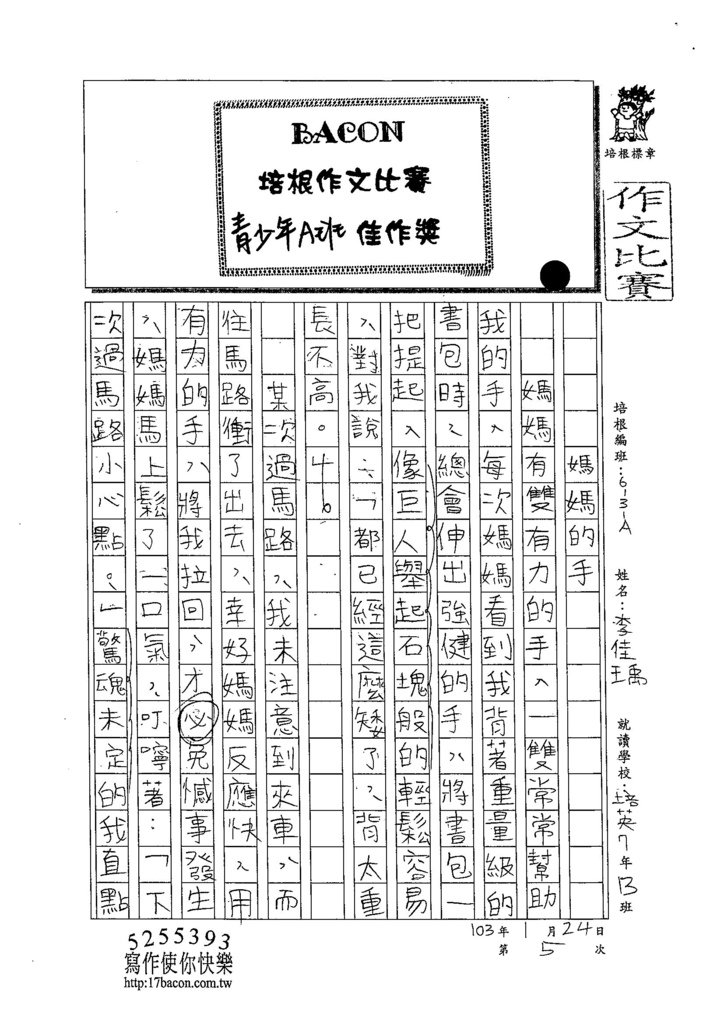 BACON
培根作文比賽
青少年A班 佳作獎
培根標章
作文比賽
培根編班：613-A 姓名：李佳瑀 就讀學校：培英7年13班
媽媽的手
媽媽有雙有力的手，一雙常常幫助
我的手，每次媽媽看到我背著重量級的
書包時，總會伸出強健的手，將書包一
把提起，像巨人舉起石塊般的輕鬆容易
，對我說：「都已經這麼矮了，背太重
長不高。」
某次過馬路，我未注意到來車，而
往馬路衝了出去，幸好媽媽反應快，用
有力的手，將我拉回，才必免憾事發生
，媽媽馬上鬆了一口氣，叮嚀著：「下
次過馬路小心點。」驚魂未定的我直點
103年1月24日
第5次
5255393
寫作使你快樂
http:17bacon.com.tw